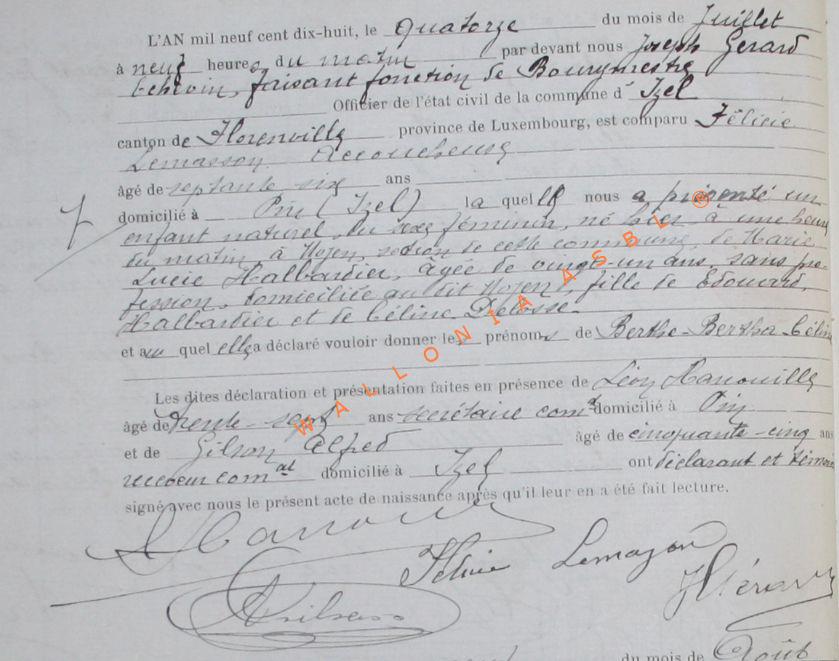 L'AN mil neuf cent dix-huit, le quatorze du mois de Juillet
à neuf heures du matin par devant nous Joseph Gerard
Echevin, faisant fonction de Bourgmestre
Officier de l'état civil de la commune d' Izel
canton de Florenville province de Luxembourg, est comparu Félicie
Lemasson, Accoucheuse
âgé de septante six ans
domicilié à Pin (Izel) la quelle nous a présenté un
7
enfant naturel, du sexe féminin, né hier à une heure
du matin à Moyen, section de cette commune, de Marie
Lucie Halbardier, âgée de vingt un ans, sans pro-
fession, domiciliée au dit Moyen, fille de Edouard,
Halbardier et de Céline
et au quel elle a déclaré vouloir donner les prénoms de Berthe-Bertha-Céline
Les dites déclaration et présentation faites en présence de Léon
âgé de trente-sept ans secrétaire com domicilié à Pin
et de Gilson Alfred âgé de cinquante-cinq ans
receveur com.al domicilié à Izel ont déclarant et témoin
signé avec nous le présent acte de naissance après qu'il leur en a été fait lecture.
Félicie Lemasson
JGérard
Gilson
du mois de Août
WALLONIA ASBL ®